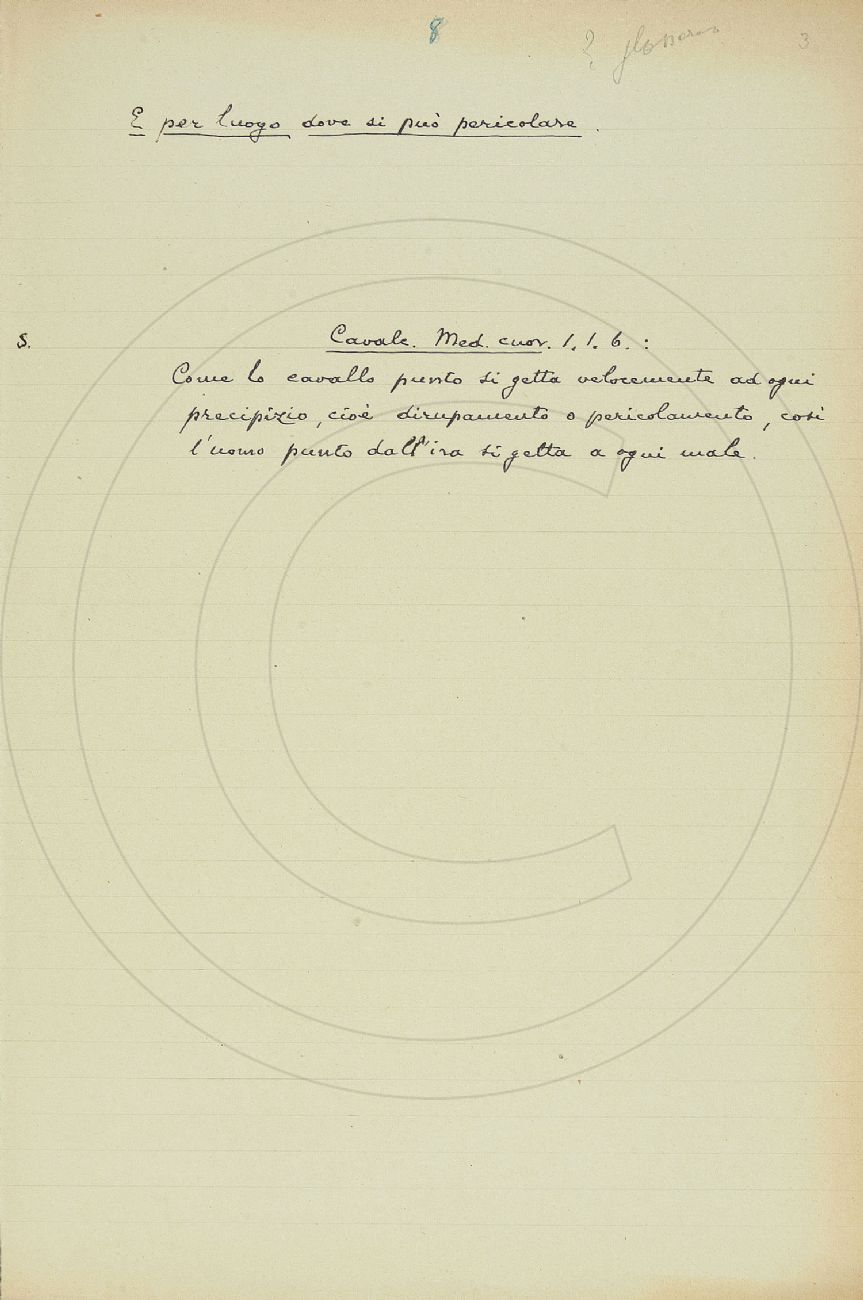 8 ? 3
E per luogo dove si può pericolare.
S. Cavalc. Med. cuor. 1. 1. 6. :
Come lo cavallo punto si getta velocemente ad ogni
precipizio, cioè dirupamento o pericolamento, così
l'uomo punto dall'ira si getta a ogni male.